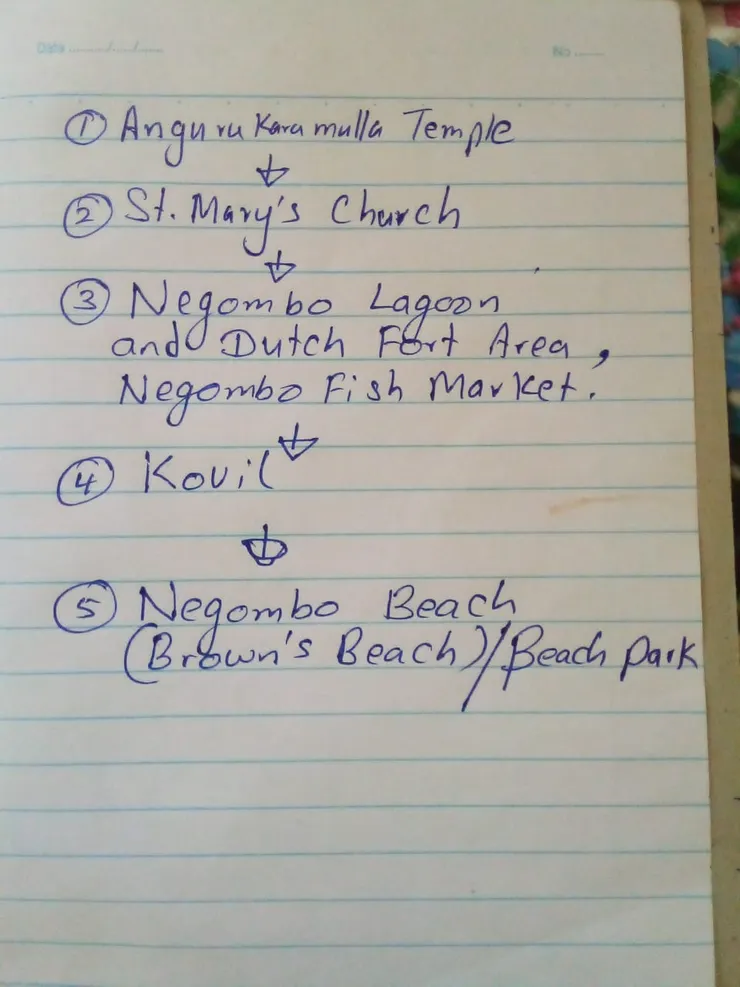 Date ....../....../......
No ......
① Angurukaramulla Temple
② St. Mary's Church
③ Negombo Lagoon
and Dutch Fort Area,
Negombo Fish Market.
④ Kovil
⑤ Negombo Beach
(Brown's Beach)/Beach park